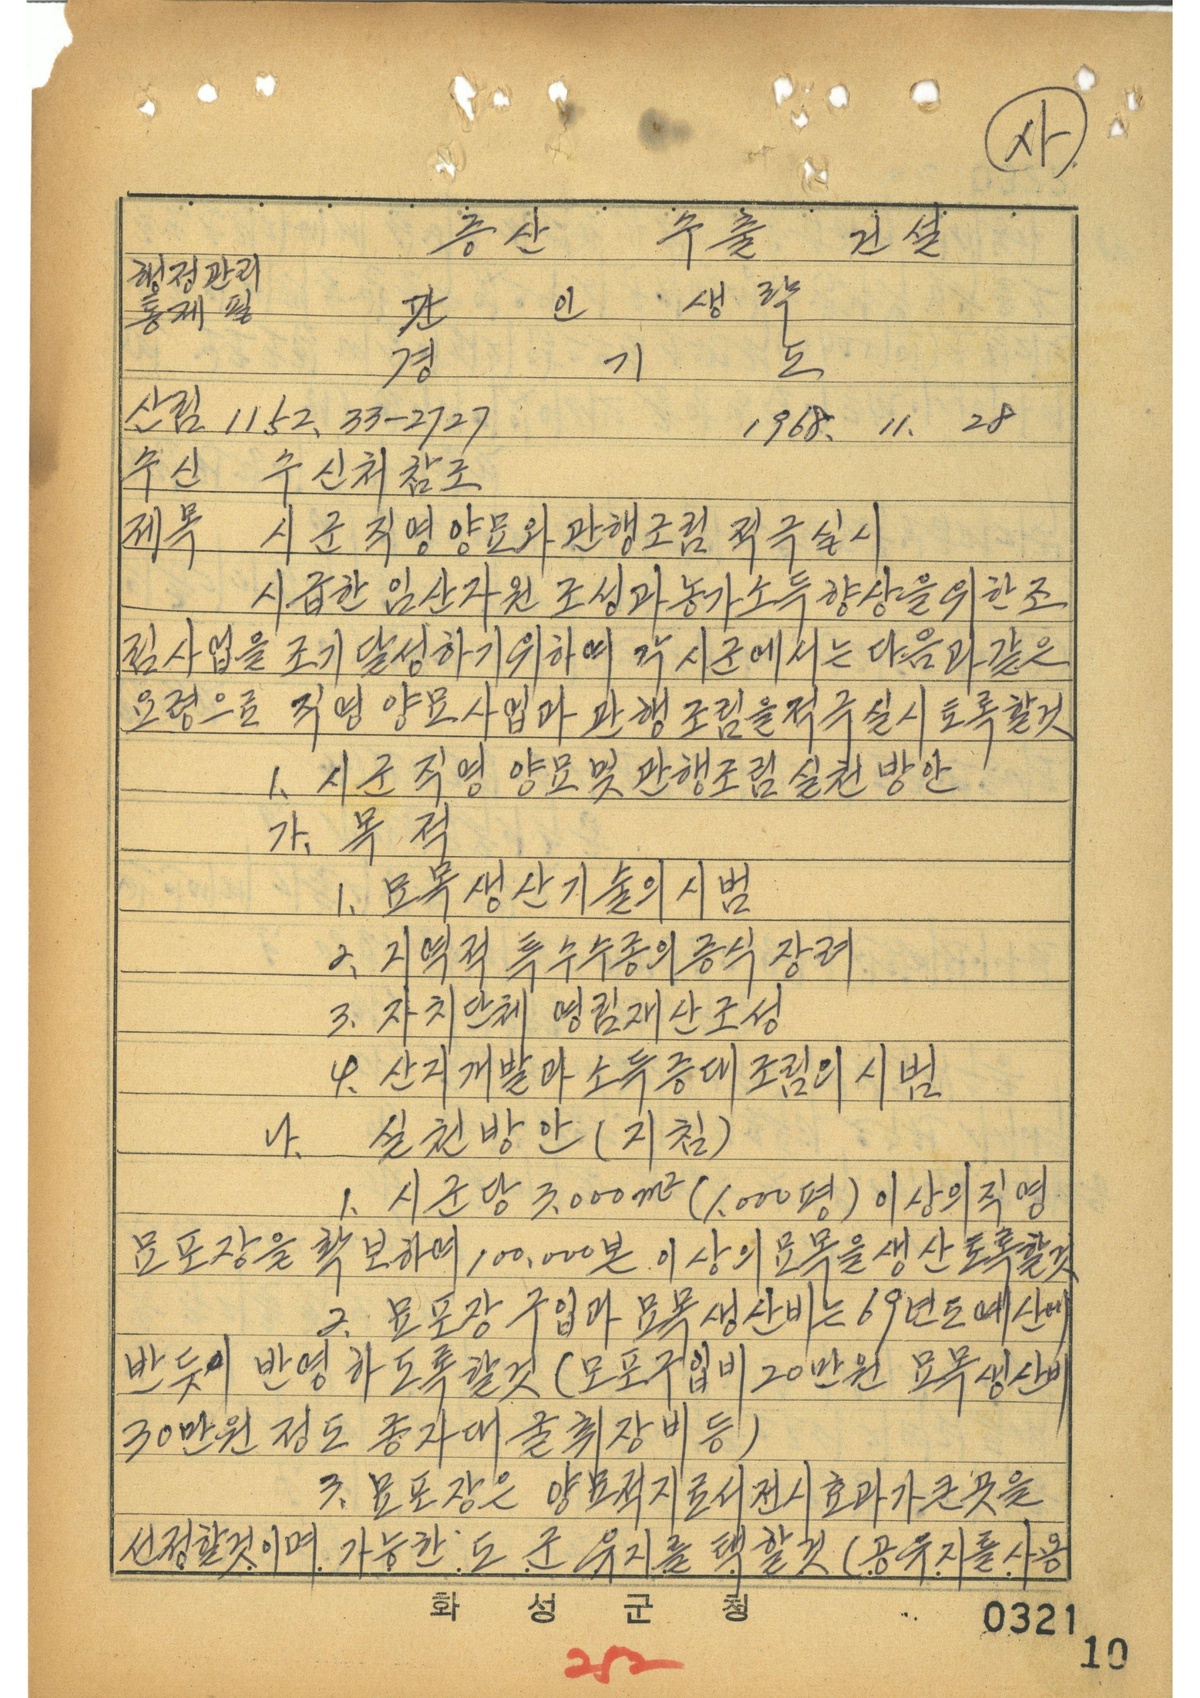 사
증산 수출 건설
행정관리
통제필 관인생략
경기도
산림 1152. 33-2727 1968. 11. 28
수신 수신처참조
제목 시군 직영양묘와 관행조림 적극실시
시급한 임산자원 조성과 농가소득향상을위한조
림사업을 조기달성하기위하여 각 시군에서는 다음과같은
요령으로 직영 양묘사업과 관행조림을적극실시토록할것
1. 시군직영 양묘및 관행조림실천방안
가. 목적
1. 묘목생산기술의시범
2. 지역적 특수수종의증식장려
3. 자치단체 영림재산조성
4. 산지개발과 소득증대조림의 시범
나. 실천방안(지침)
1. 시군당 3,000m² (1,000평) 이상의직영
묘포장을 확보하여 100,000본 이상의묘목을생산토록할것
2. 묘포장구입과 묘목생산비는 69년도예산에
반듯이 반영하도록할것 (모포구입비 20만원 묘목생산비
30만원정도 종자대굴취장비등)
3. 묘포장은 양묘적지로서전시효과가큰곳을
선정할것이며 가능한 도 군 유지를 택할것 (공유지를사용
화성군청
0321
10
252